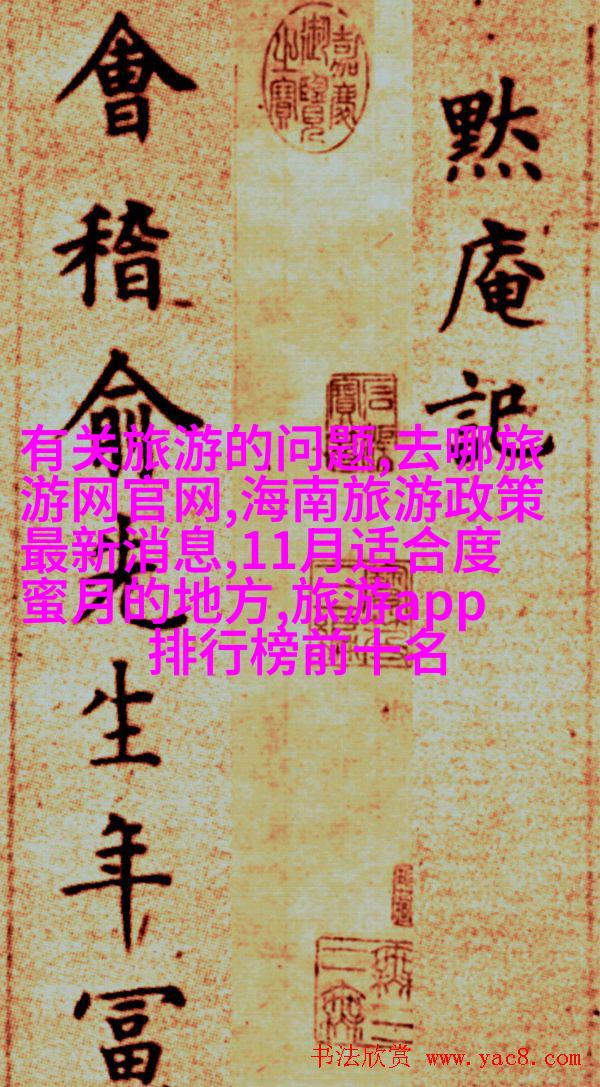 默庵記
嘉慶御覽之寶
會稽俞先生年冨
有关旅游的问题,去哪旅
游网官网,海南旅游政策
最新消息,11月适合度
蜜月的地方,旅游app
排行榜前十名
书法欣赏 www.yac8.com